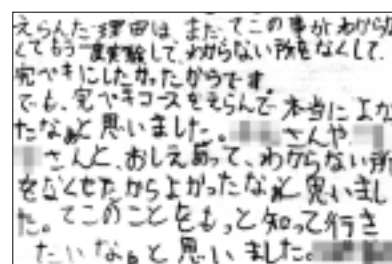 えらんだ理由は、まだてこの事がわからな
くてもう一度実験して、わからない所をなくして、
完ペキにしたかったからです。
でも、完ペキコースをえらんで本当によか
たなぁと思いました。さんや
さんと、おしえあって、わからない所
をなくせたからよかったなぁと思いまし
た。てこのことをもっと知って行き
たいなぁと思いました。